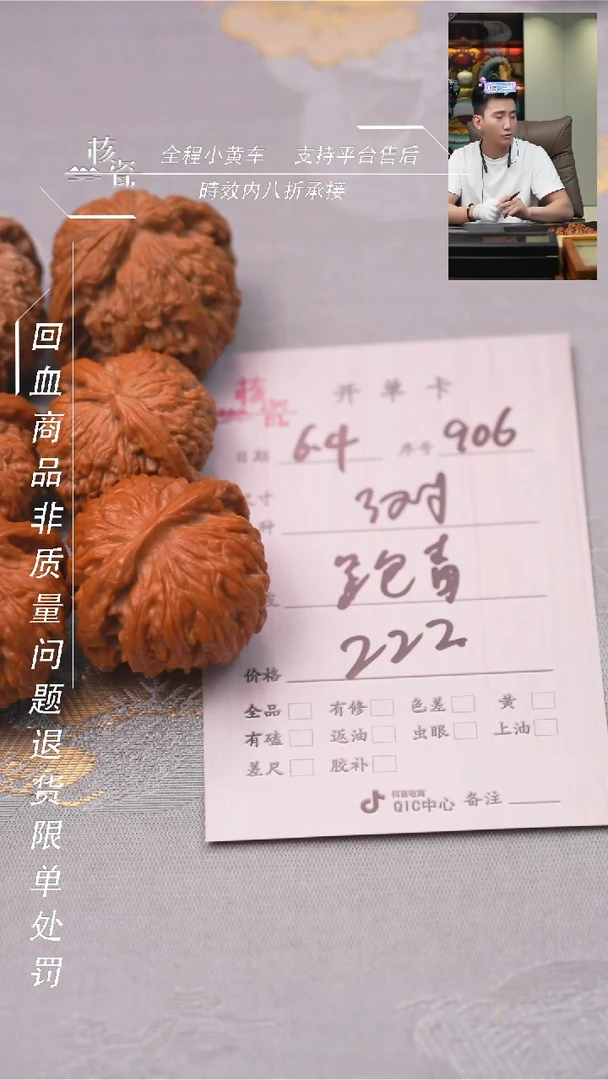 核瓷
全程小黄车 支持平台售后
時效内八折承接
回血商品非质量问题退货限单处罚
核瓷
开单卡
日期 6.4 序号 906
寸 3对
种
包青
价格 222
全品 有修 色差 黄
有磕 返油 虫眼 上油
差尺 胶补
抖音电商
QIC中心 备注